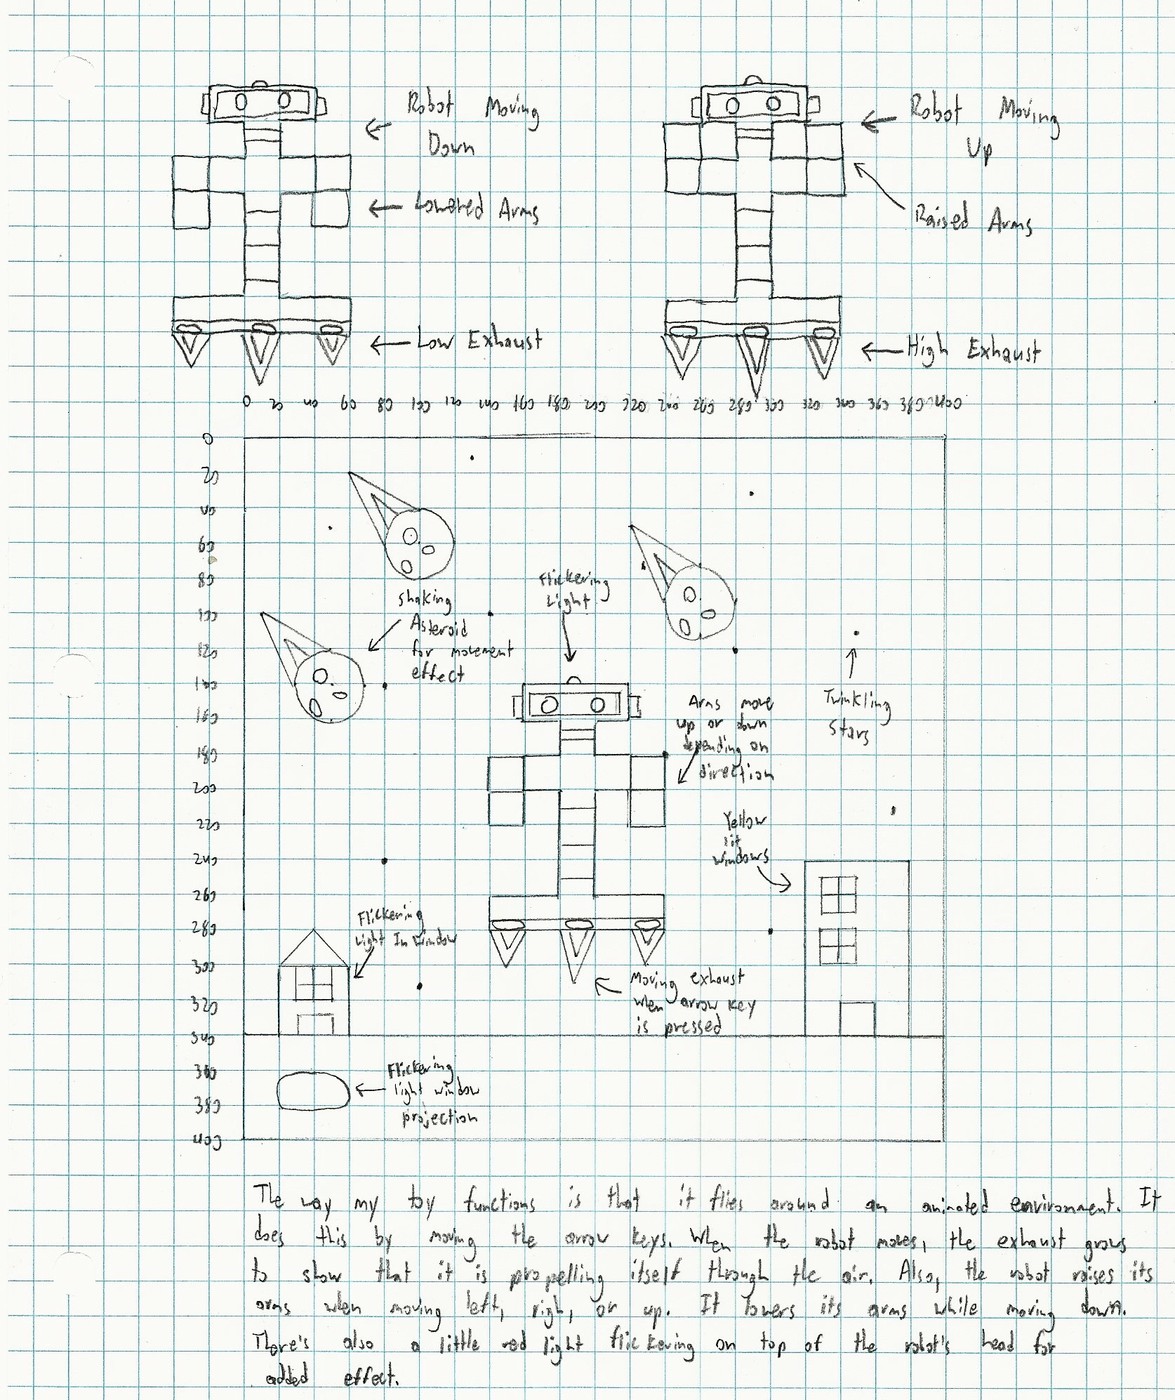 Robot Moving
Down
Lowered Arms
Low Exhaust
Robot Moving
Up
Raised Arms
High Exhaust
0 20 40 60 80 100 120 140 160 180 200 220 240 260 280 300 320 340 360 380 400
0
20
40
60
80
100
120
140
160
180
200
220
240
260
280
300
320
340
360
380
400
shaking
Asteroid
for movement
effect
Flickering
Light
Twinkling
Stars
Arms move
up or down
depending on
direction
Yellow
lit
windows
Flickering
Light In Window
Moving exhaust
when arrow key
is pressed
Flickering
light window
projection
The way my toy functions is that it flies around an animated environment. It
does this by moving the arrow keys. When the robot moves, the exhaust grows
to show that it is propelling itself through the air. Also, the robot raises its
arms when moving left, righ, or up. It lowers its arms while moving down.
There's also a little red light flickering on top of the robot's head for
added effect.